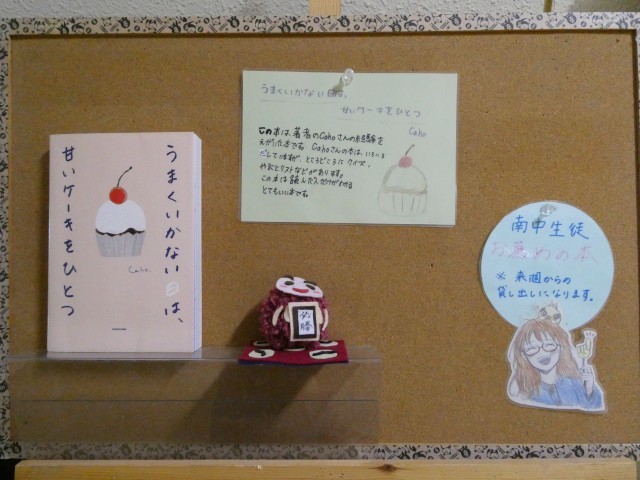 うまくいかない日は、
甘いケーキをひとつ
Caho.
うまくいかない日は、
甘いケーキをひとつ
Caho
この本は、著者のCahoさんの経験を
えがいた本です。Cahoさんの本は、いろいろ
だしていますが、ところどころに クイズ、
やることリストなどがあります。
この本は読んだ人だけがわかる
とてもいい本です。
必勝
南中生徒
お薦めの本
※ 来週からの
貸し出しになります。